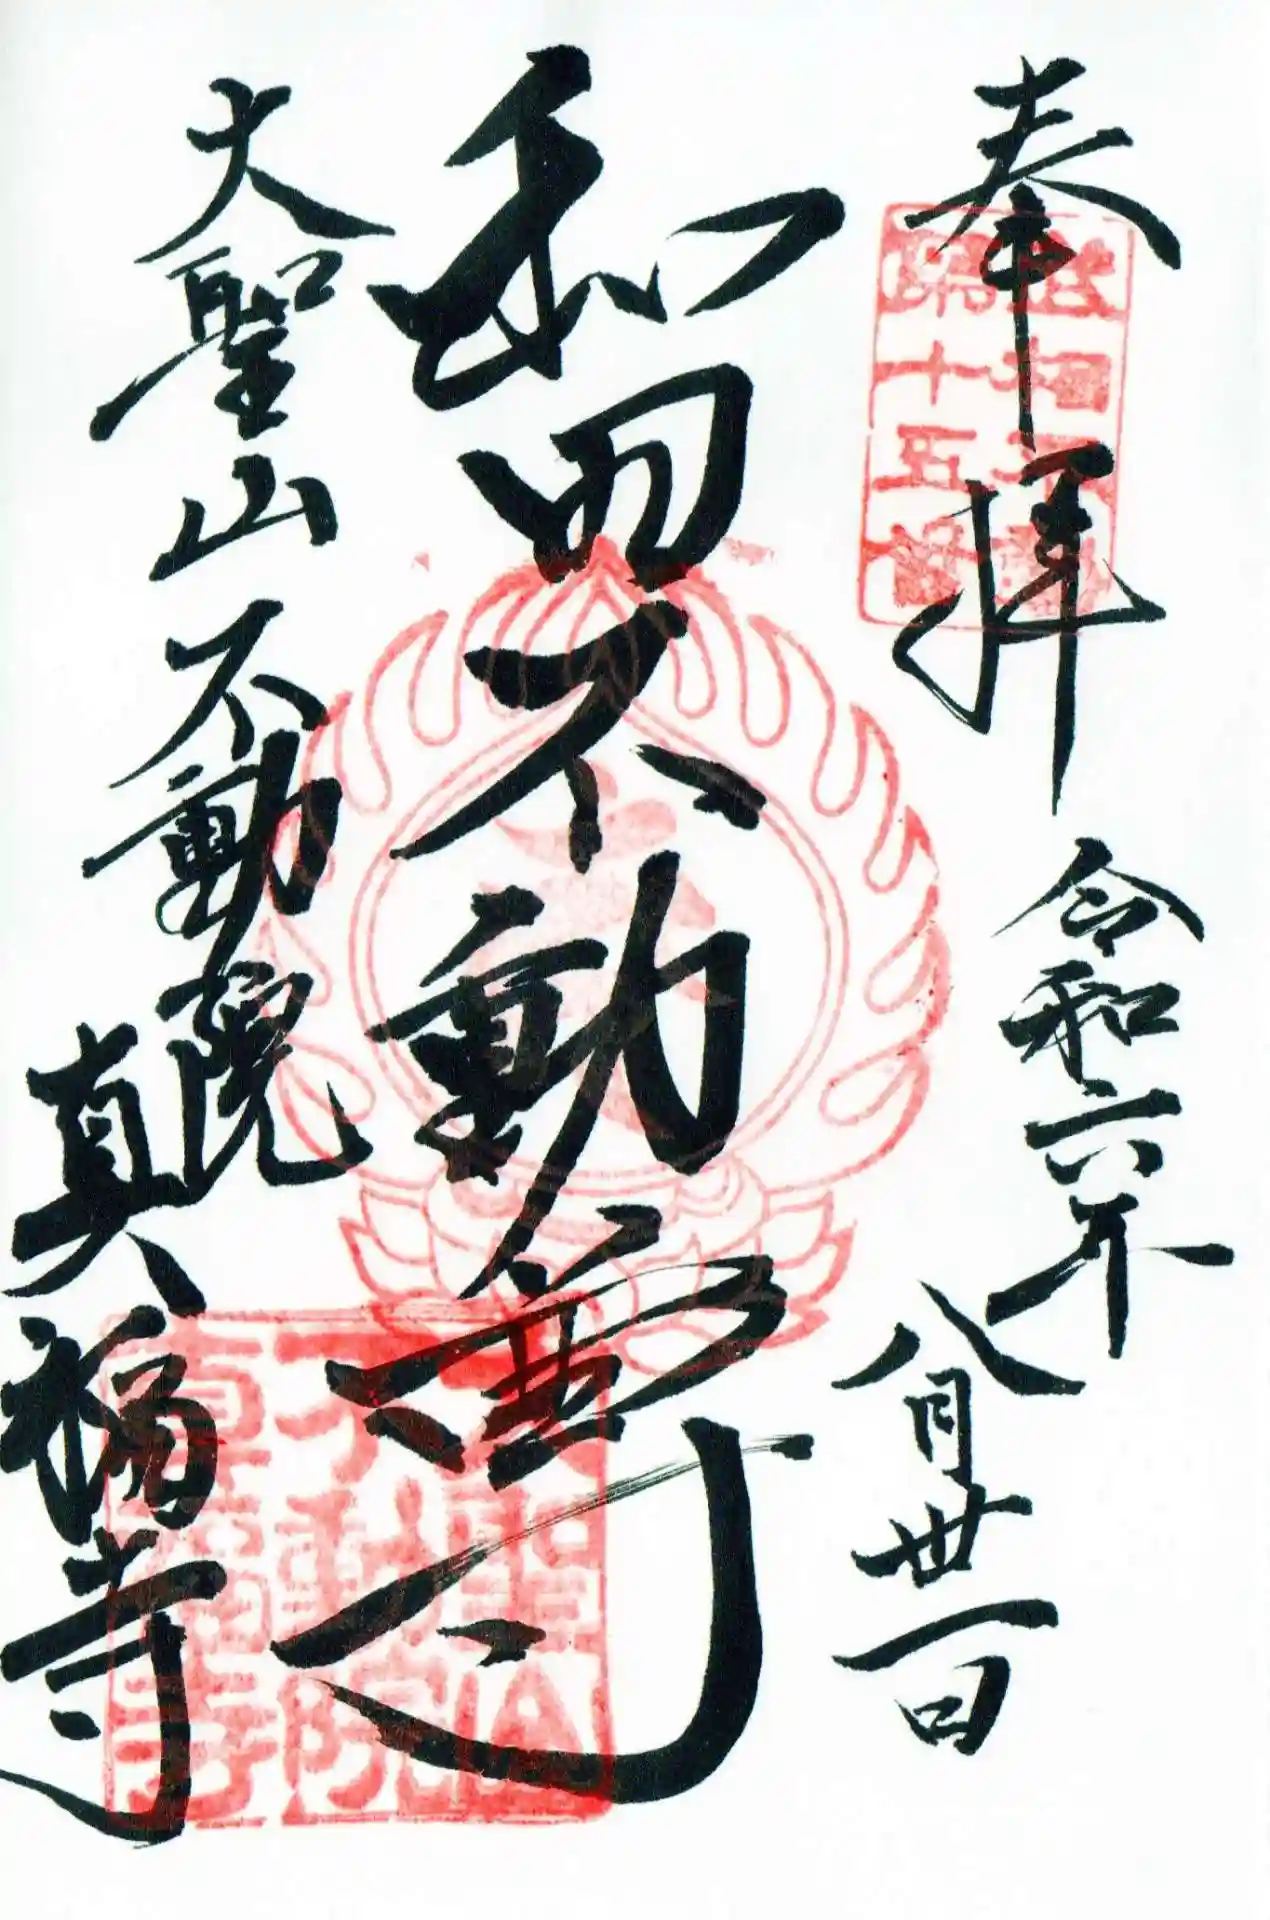 奉拝
令和六年
八月卅一日
武相不動
第十五番
和田不動尊
大聖山不動院
真福寺
大聖山
不動院
真福寺